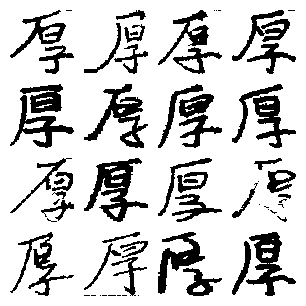 厚厚厚厚
厚厚厚厚
厚厚厚厚
厚厚厚厚